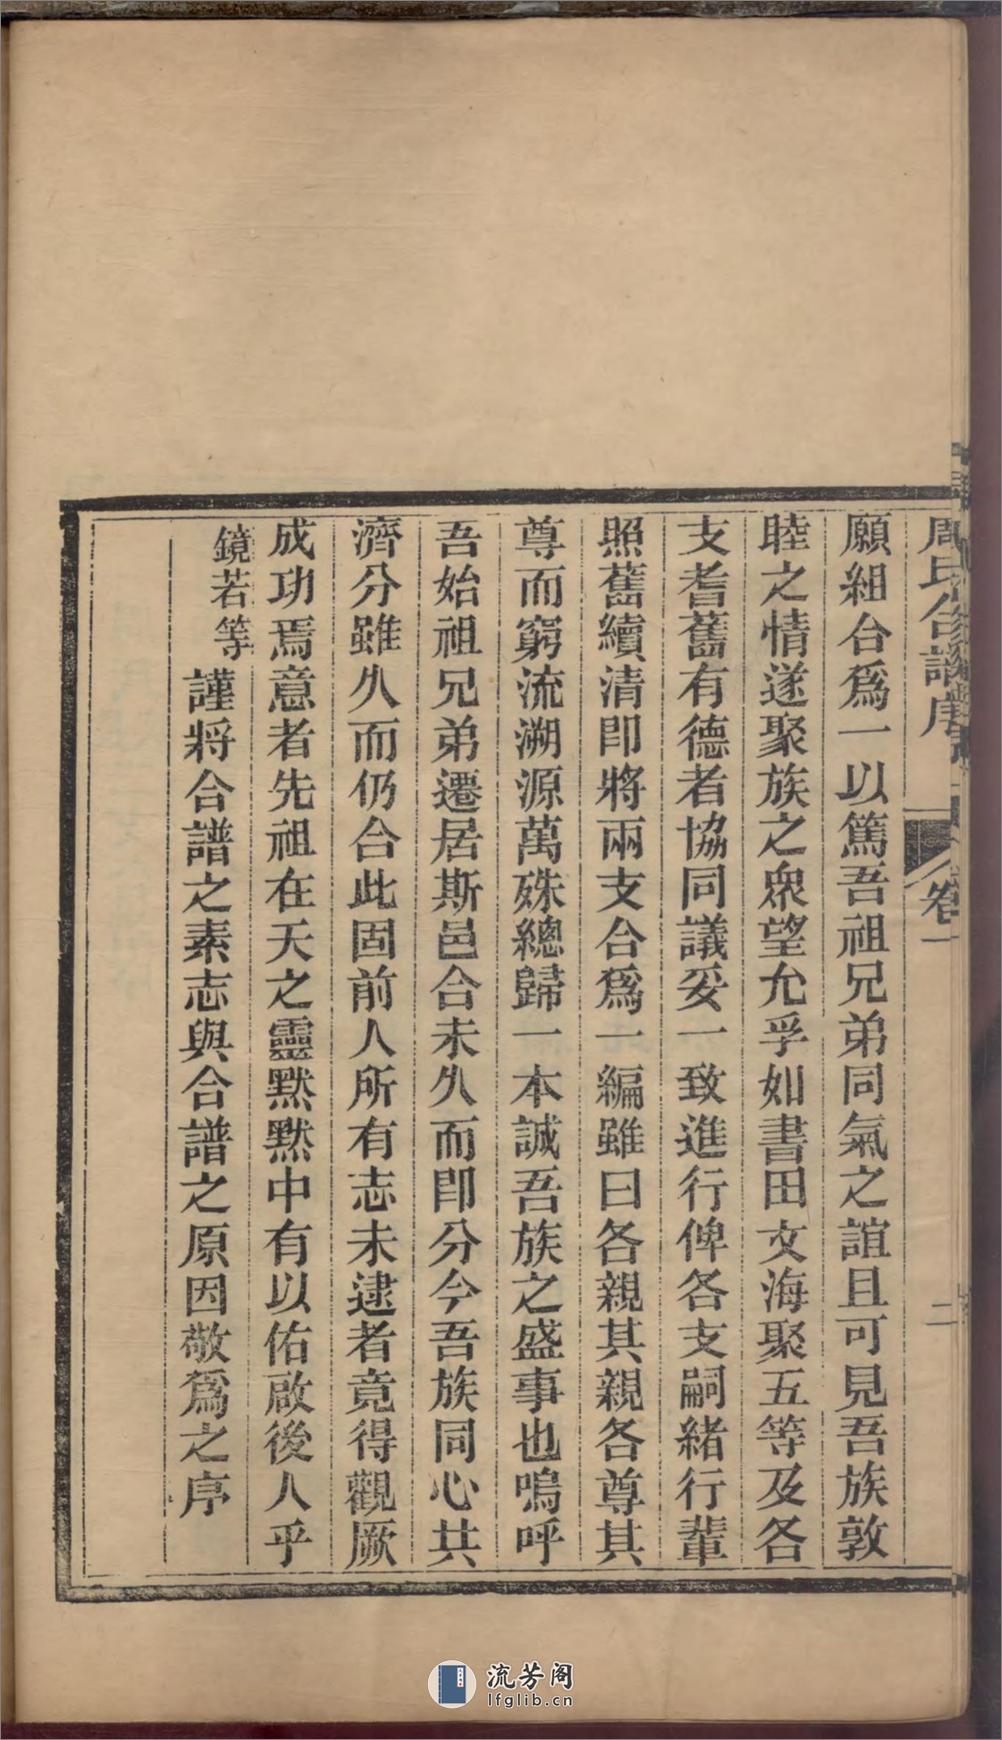 周氏合譜序
卷一
二
願組合爲一以篤吾祖兄弟同氣之誼且可見吾族敦
睦之情遂聚族之衆望允孚如書田文海聚五等及各
支耆舊有德者協同議妥一致進行俾各支嗣緒行輩
照舊續清即將兩支合爲一編雖曰各親其親各尊其
尊而窮流溯源萬殊總歸一本誠吾族之盛事也嗚呼
吾始祖兄弟遷居斯邑合未久而即分今吾族同心共
濟分雖久而仍合此固前人所有志未逮者竟得觀厥
成功焉意者先祖在天之靈默默中有以佑啟後人乎
鏡若等謹將合譜之素志與合譜之原因敬爲之序
流芳阁
lfglib.cn